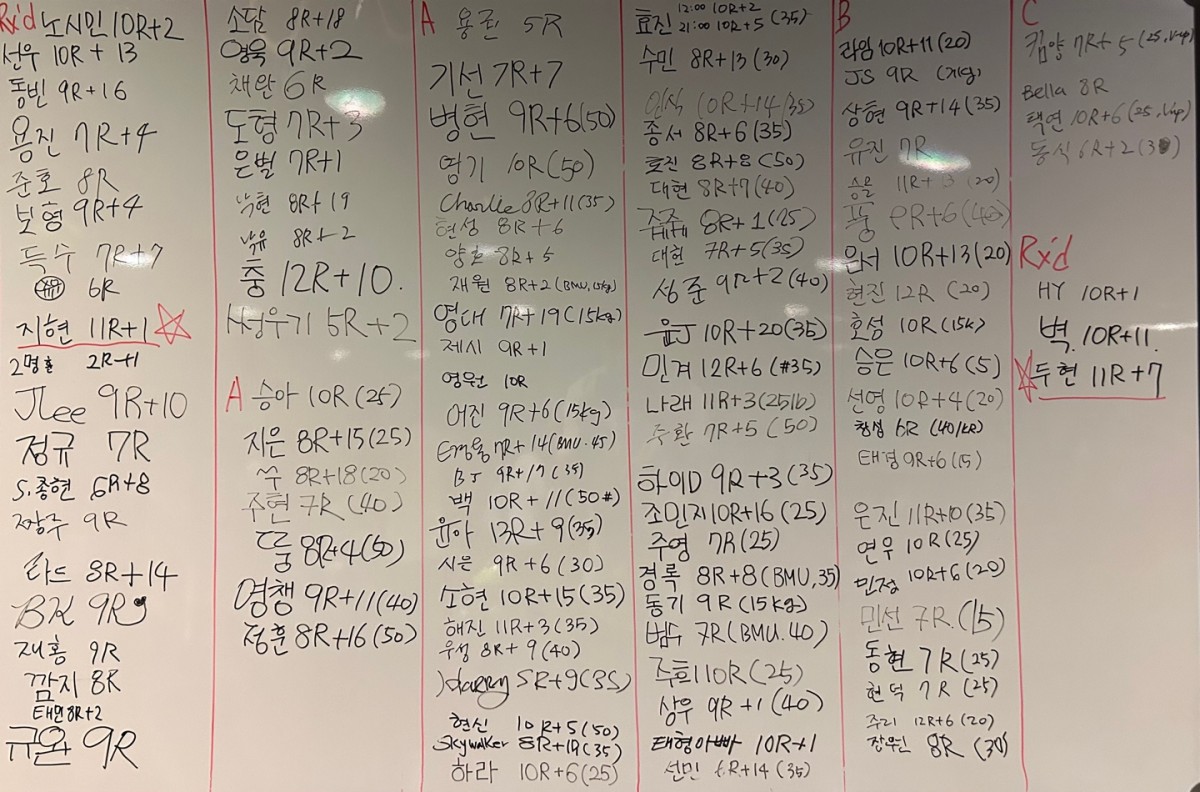 Rx'd 노시민 10R+2
선우 10R+13
동빈 9R+16
용진 7R+4
준호 8R
보형 9R+4
득수 7R+7
6R
지현 11R+1
2명훈 2R+1
JLee 9R+10
정규 7R
S.종현 6R+8
짱주 9R
라드 8R+14
BK 9R
재홍 9R
깜지 8R
태민 8R+2
규완 9R
소담 8R+18
영욱 9R+2
채완 6R
도형 7R+3
은별 7R+1
낙현 8R+19
낙유 8R+2
충 12R+10.
서성우기 5R+2
A 승아 10R (25)
지은 8R+15(25)
쑤 8R+18(20)
주현 7R (40)
8R+4(50)
영챙 9R+11(40)
정훈 8R+16(50)
A 용준 5R
기선 7R+7
병현 9R+6(50)
영기 10R(50)
Charlie 8R+11(35)
현성 8R+6
양호 8R+5
재원 8R+2(BMU,15kg)
영대 7R+19(15kg)
제시 9R+1
영원 10R
어진 9R+6(15kg)
7R+14(BMU.45)
BJ 9R+17(35)
백 10R+11(50#)
윤아 13R+9(35)
시은 9R+6(30)
소현 10R+15(35)
해진 11R+3(35)
우성 8R+9(40)
Harry 5R+9(35)
현신 10R+5(50)
Skywalker 8R+19(35)
하라 10R+6(25)
효진 12:00 10R+2
21:00 10R+5 (35)
수민 8R+13(30)
인식 10R+14(35)
종서 8R+6(35)
효진 8R+8(50)
대현 8R+7(40)
쥬쥬 8R+1(25)
대현 7R+5(35)
성준 9R+2(40)
윤J 10R+20(35)
민겨 12R+6 (#35)
나래 11R+3(25lb)
주환 7R+5 (50)
하이D 9R+3(35)
조민지 10R+16(25)
주영 7R(25)
경록 8R+8(BMU,35)
동기 9R(15kg)
범수 7R(BMU.40)
주희 10R(25)
상우 9R+1(40)
태형아빠 10R+1
선민 6R+14 (35)
B
라임 10R+11(20)
JS 9R
상현 9R+14(35)
유진 7R
승은 11R+13(20)
풍 8R+6(40)
윤서 10R+13(20)
현진 12R (20)
호성 10R(15k)
승은 10R+6(5)
선영 10R+4(20)
창섭 6R (40/KR)
태경 9R+6(15)
은진 11R+10(35)
연우 10R(25)
민정 10R+6(20)
민선 7R.(15)
동현 7R(25)
현덕 7R (25)
주리 12R+6(20)
장원 8R (30)
C
킴양 7R+5(25,V-up)
Bella 8R
택연 10R+6(25,V-up)
동식 6R+2(30)
Rx'd
HY 10R+1
벽. 10R+11.
두현 11R+7